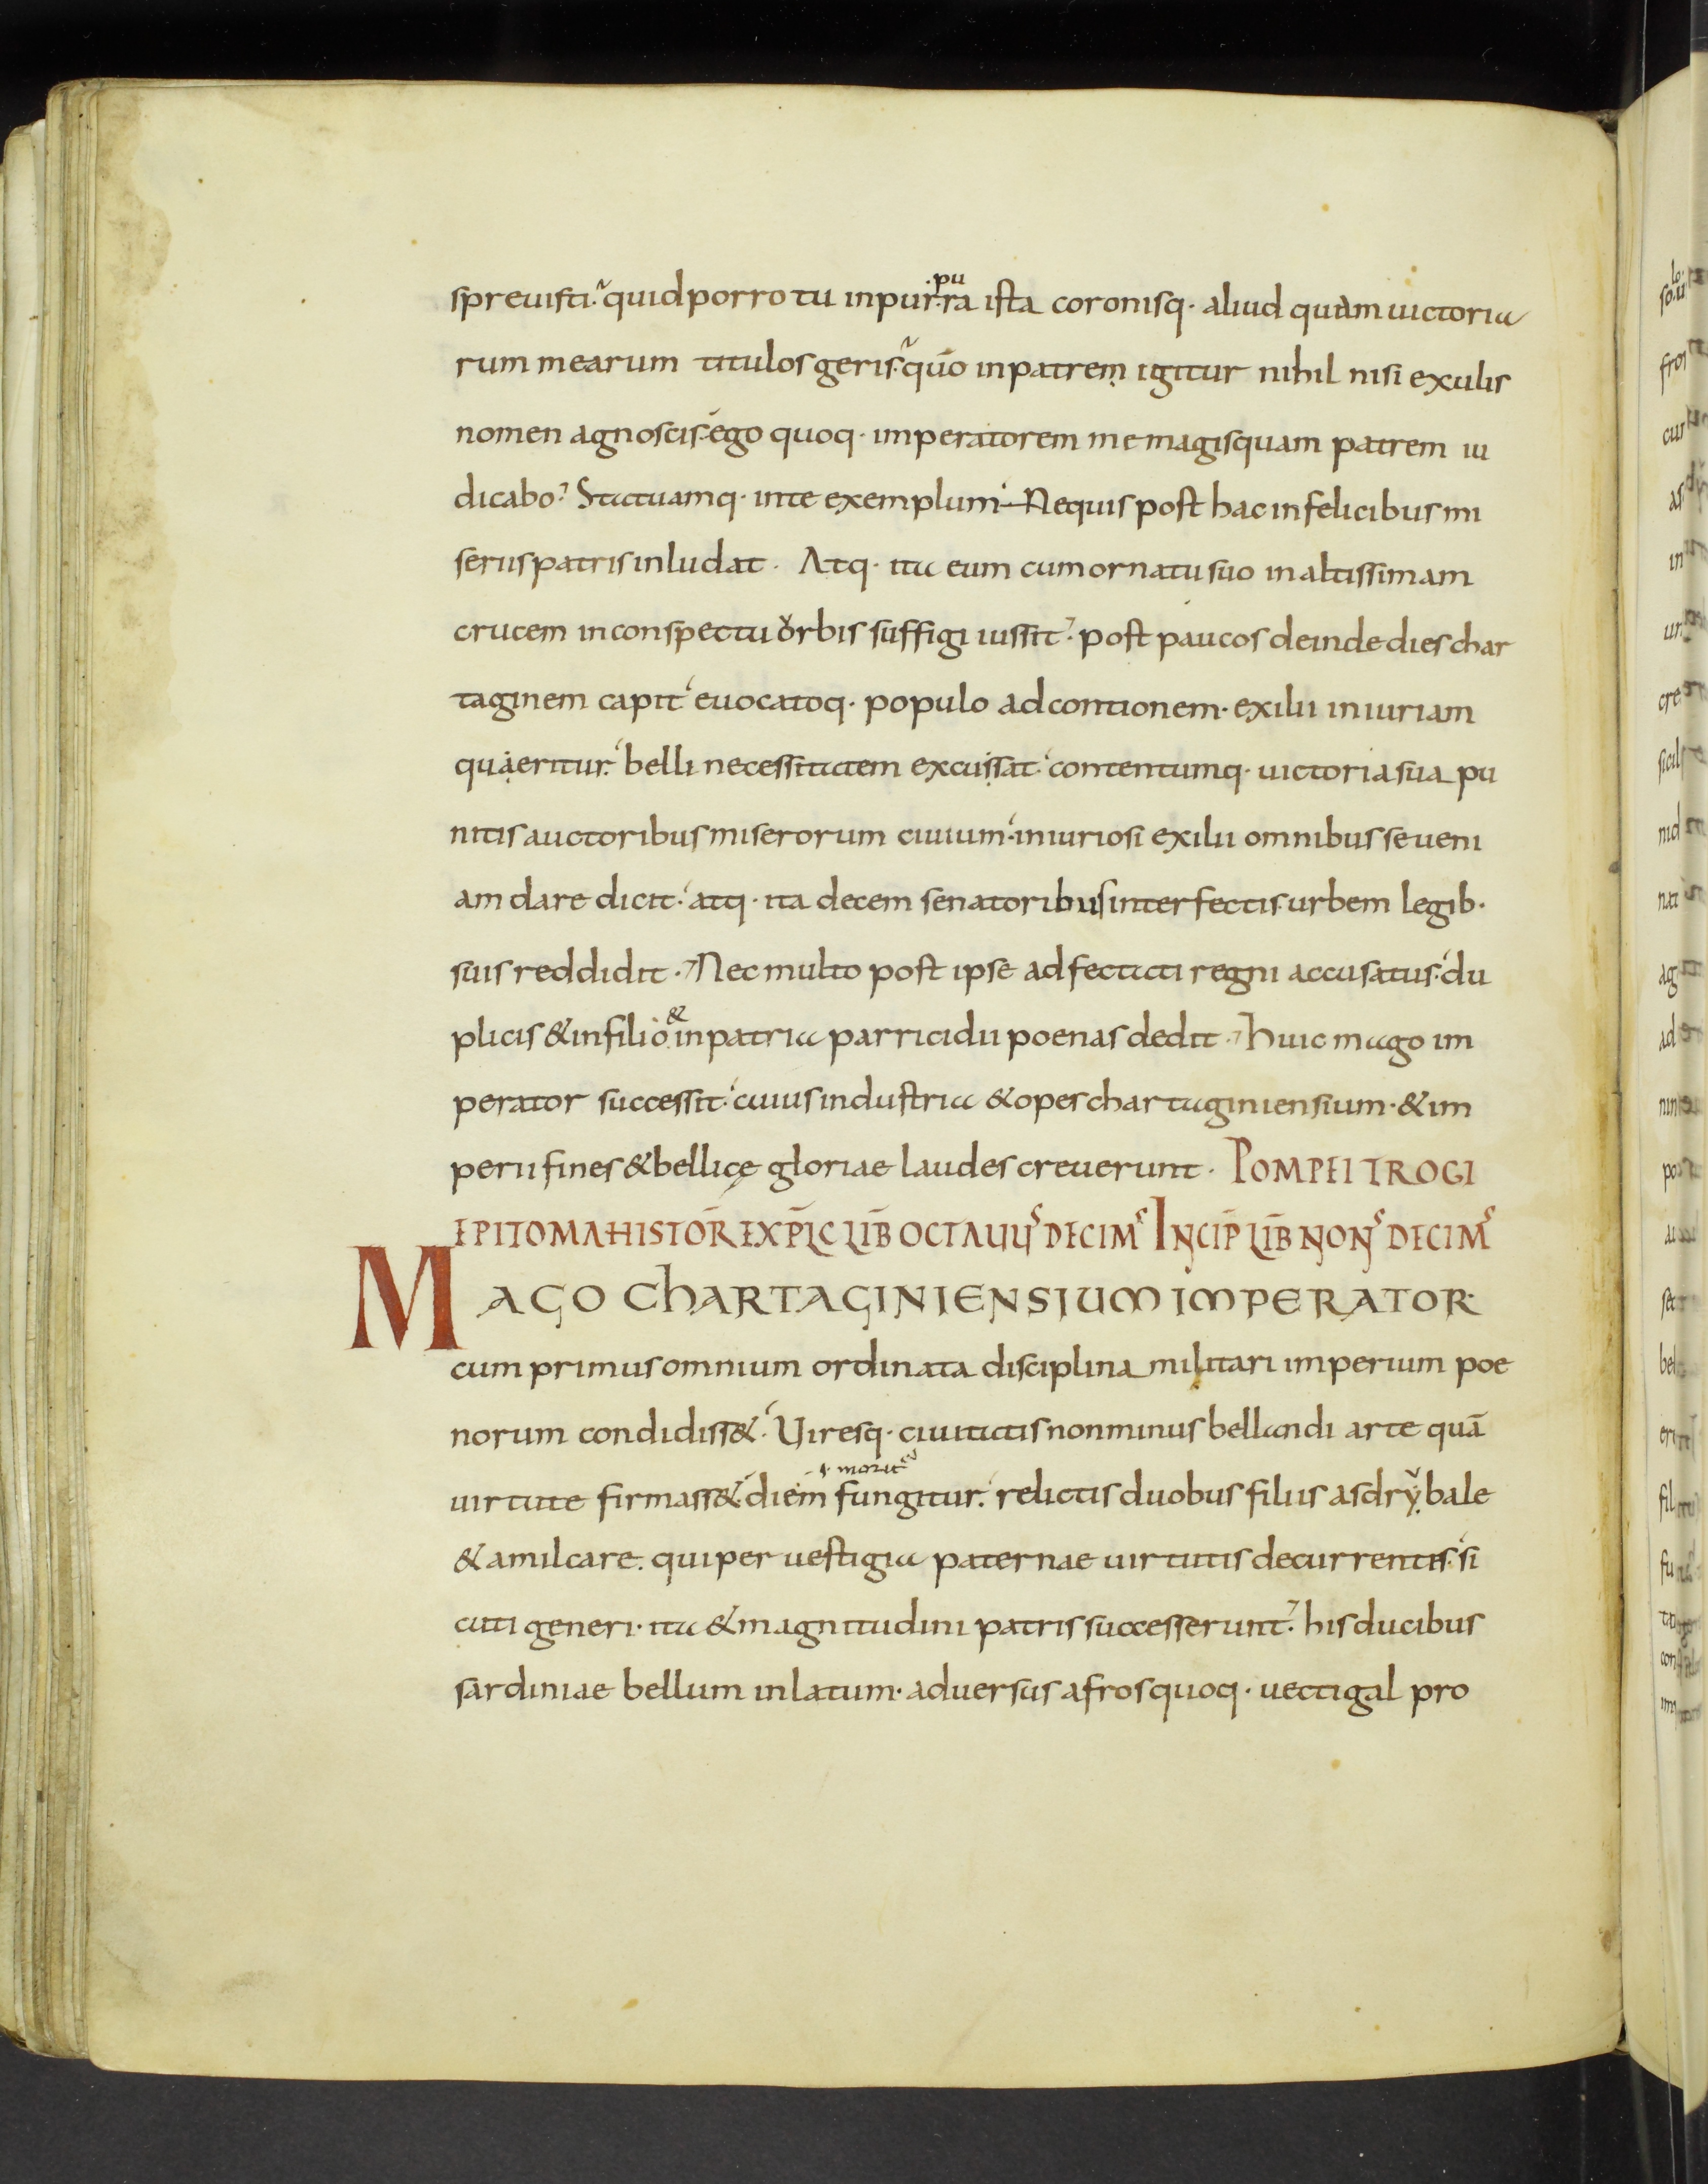 spreuisti. quid porro tu in purpura ista coronisq· aliud quam uictoria
rum mearum titulos geris. quo in patrem igitur nihil nisi exulis
nomen agnoscis. ego quoq· imperatorem me magis quam patrem iu
dicabo. Statuamq· in te exemplum. Ne quis post hac infelicibus mi
seriis patris inludat. Atq· ita eum cum ornatu suo in altissimam
crucem in conspectu orbis suffigi iussit. post paucos deinde dies char
taginem capit euocatoq· populo ad contionem· exilii iniuriam
quaeritur. belli necessitatem excussat. contentumq· uictoria sua pu
nitis auctoribus miserorum ciuium· iniuriosi exilii omnibus se ueni
am dare dicit. atq· ita decem senatoribus interfectis. urbem legib·
suis reddidit. Nec multo post ipse adfectati regni accusatus. du
plicis & in filio & in patria parricidii poenas dedit. Huic mago im
perator successit. cuius industria & opes chartaginiensium· & im
perii fines & bellicę gloriae laudes creuerunt. POMPEI TROGI
EPITOMA HISTOR̄ EXPL̄C LIB̄ OCTAUUS DECIMS INCIP̄ LIB̄ NONS DECIMS
MAGO CHARTAGINIENSIUM IMPERATOR
cum primus omnium ordinata disciplina militari imperium poe
norum condidiss&. Uiresq· ciuitatis non minus bellandi arte quā
uirtute firmass&. diem fungitur. relictis duobus filiis asdrybale
& amilcare. qui per uestigia paternae uirtutis decurrentis. si
cuti generi· ita & magnitudini patris successerunt. his ducibus
sardiniae bellum inlatum· aduersus afros quoq· uectigal pro